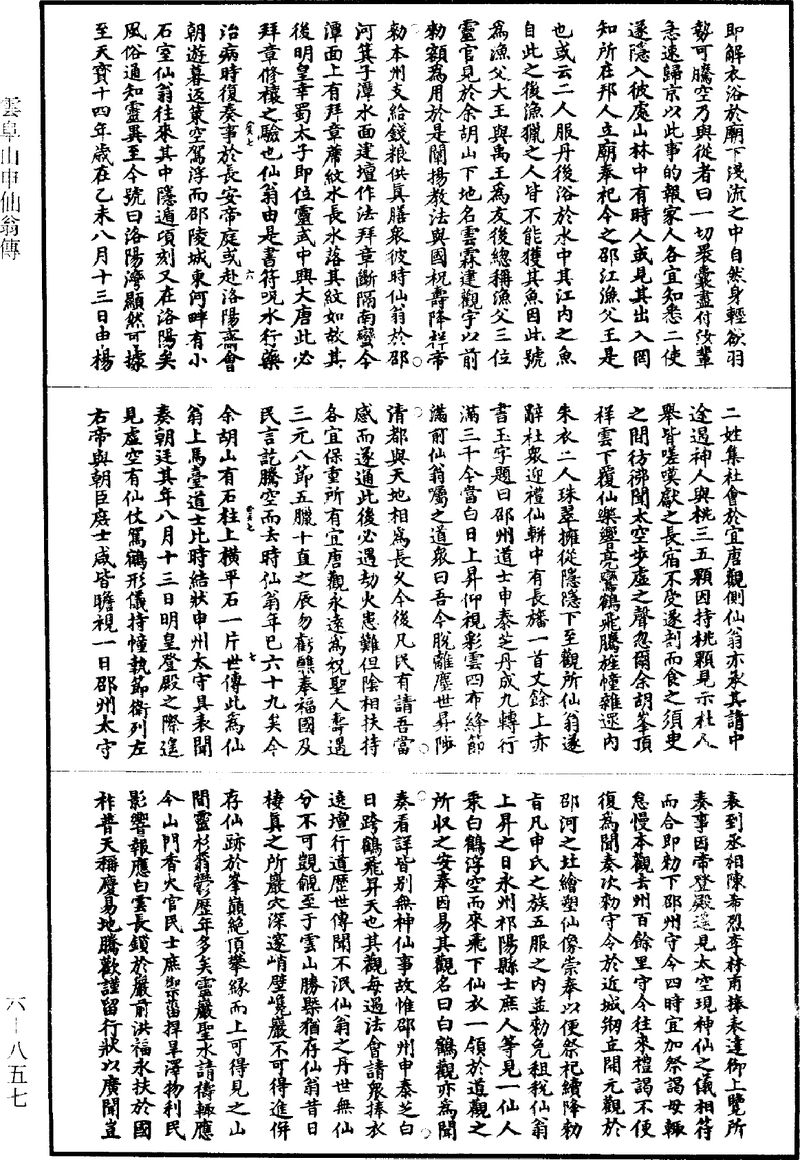 即解衣浴於廟下淺流之中自然身輕欲羽
勢可騰空乃與從者曰一切衆囊盡付汝輩
急速歸京以此事的報家人各宜知悉二使
遂隱入彼處山林中有時人或見其出入罔
知所在邦人立廟奉祀今之邵江漁父王是
也或云二人服丹後浴於水中其江內之魚
自此之後漁獵之人皆不能獲其魚因此號
為漁父大王與禹王為友後總稱漁父三位
靈官見於余胡山下地名雲霖建觀宇以前
勑額為用於是闡揚教法與國祝壽降祥帝
勑本州支給錢粮供真膳衆彼時仙翁於邵
河箕子潭水面建壇作法拜章斷隔南蠻今
潭面上有拜章蓆紋水長水落其紋如故其
後明皇幸蜀太子即位靈武中興大唐此必
拜章修禳之驗也仙翁由是書符呪水行藥
治病時復奏事於長安帝庭或赴洛陽齋會
朝遊暮返乘空駕浮而邵陵城東河畔有小
石室仙翁往來其中隱遁頃刻又在洛陽矣
風俗通知靈異至今號曰洛陽灣顯然可據
至天寶十四年歲在乙未八月十三日由楊
二姓集社會於宜唐觀側仙翁亦承其請中
途過神人與桃三五顆因持桃顆見示社人
舉皆嗟嘆獻之長宿不受遂剖而食之須臾
之間彷彿聞太空步虛之聲忽爾余胡峯頂
祥雲下覆仙樂嘹亮鸞鶴飛騰旌幢雜還內
朱衣二人珠翠擁從隱隱下至觀所仙翁遂
辭社衆迎禮仙軿中有長旛一首丈餘上亦
書玉字題曰邵州道士申泰芝丹成九轉行
滿三千今當白日上昇仰視彩雲四布絳節
滿前仙翁囑之道衆曰吾今脫離塵世昇陟
清都與天地相為長久今後凡民有請吾當
感而遂通此後必遇劫火患難但陰相扶持
各宜保重所有宜唐觀永遠為祝聖人壽遇
三元八節五臘十直之辰勿虧醮奉福國及
民言訖騰空而去時仙翁年巳六十九矣今
余胡山有石柱上橫平石一片世傳此為仙
翁上馬臺道士比時結狀申州太守具表聞
奏朝廷其年八月十三日明皇登殿之際遙
見虛空有仙仗鸞鶴形儀持幢執節衛列左
右帝與朝臣庶士咸皆瞻視一日邵州太守
表到丞相陳希烈李林甫捧表達御上覽所
奏事因帝登殿遙見太空現神仙之儀相符
而合即勑下邵州守令四時宜加祭謁毋輒
怠慢本觀去州百餘里守令往來禮謁不便
復為聞奏次勑守令於近城剏立開元觀於
邵河之灶繪塑仙像崇奉以便祭祀續降勑
旨凡申氏之族五服之內並勑免租稅仙翁
上昇之日永州祁陽縣士庶人等見一仙人
乘白鶴浮空而來飛下仙衣一領於道觀之
所收之安奉因易其觀名曰白鶴觀亦為聞
奏看詳皆別無神仙事故惟邵州申泰芝白
日跨鶴飛昇天也其觀每遇法會請衆捧衣
遶壇行道歷世傳聞不泯仙翁之丹世無仙
分不可覬覦至于雲山勝槩猶存仙翁昔日
棲真之所巖穴深邃峭壁巉巖不可得進併
存仙跡於峯巔絕頂攀緣而上可得見之山
間靈杉蓊鬱歷年多矣靈巖聖水請禱輒應
今山門香火官民士庶禦菑捍旱澤物利民
影響報應白雲長鎖於巖前洪福永扶於國
祚普天稱慶易地騰歡謹留行狀以廣聞豈
雲阜山申仙翁傳
六-八五七